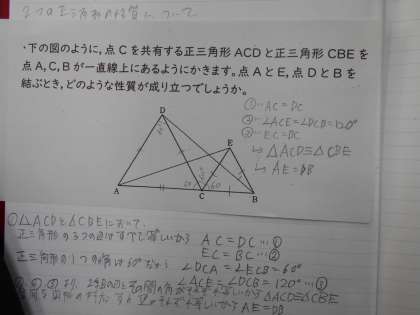 2つの正三角形の性質について
・下の図のように,点Cを共有する正三角形ACDと正三角形CBEを
点A,C,Bが一直線上にあるようにかきます。点AとE,点DとBを
結ぶとき,どのような性質が成り立つでしょうか。
①… AC=DC
②… ∠ACE=∠DCB=120°
③… EC=BC
↳ △ACD≡△CBE
↳ AE=DB
D
E
A
C
B
60
60
①△ACDと△CBEにおいて、
正三角形の3つの辺はすべて等しいから AC=DC…①
EC=BC…②
正三角形の1つの角は60°だから ∠DCA=∠ECB=60°
∠ACE=∠DCB=120°…③
①,②,③より、2組の辺とその間の角がそれぞれ等しいから△ACD≡△CBE
辺はそれぞれ等しいから AE=DB